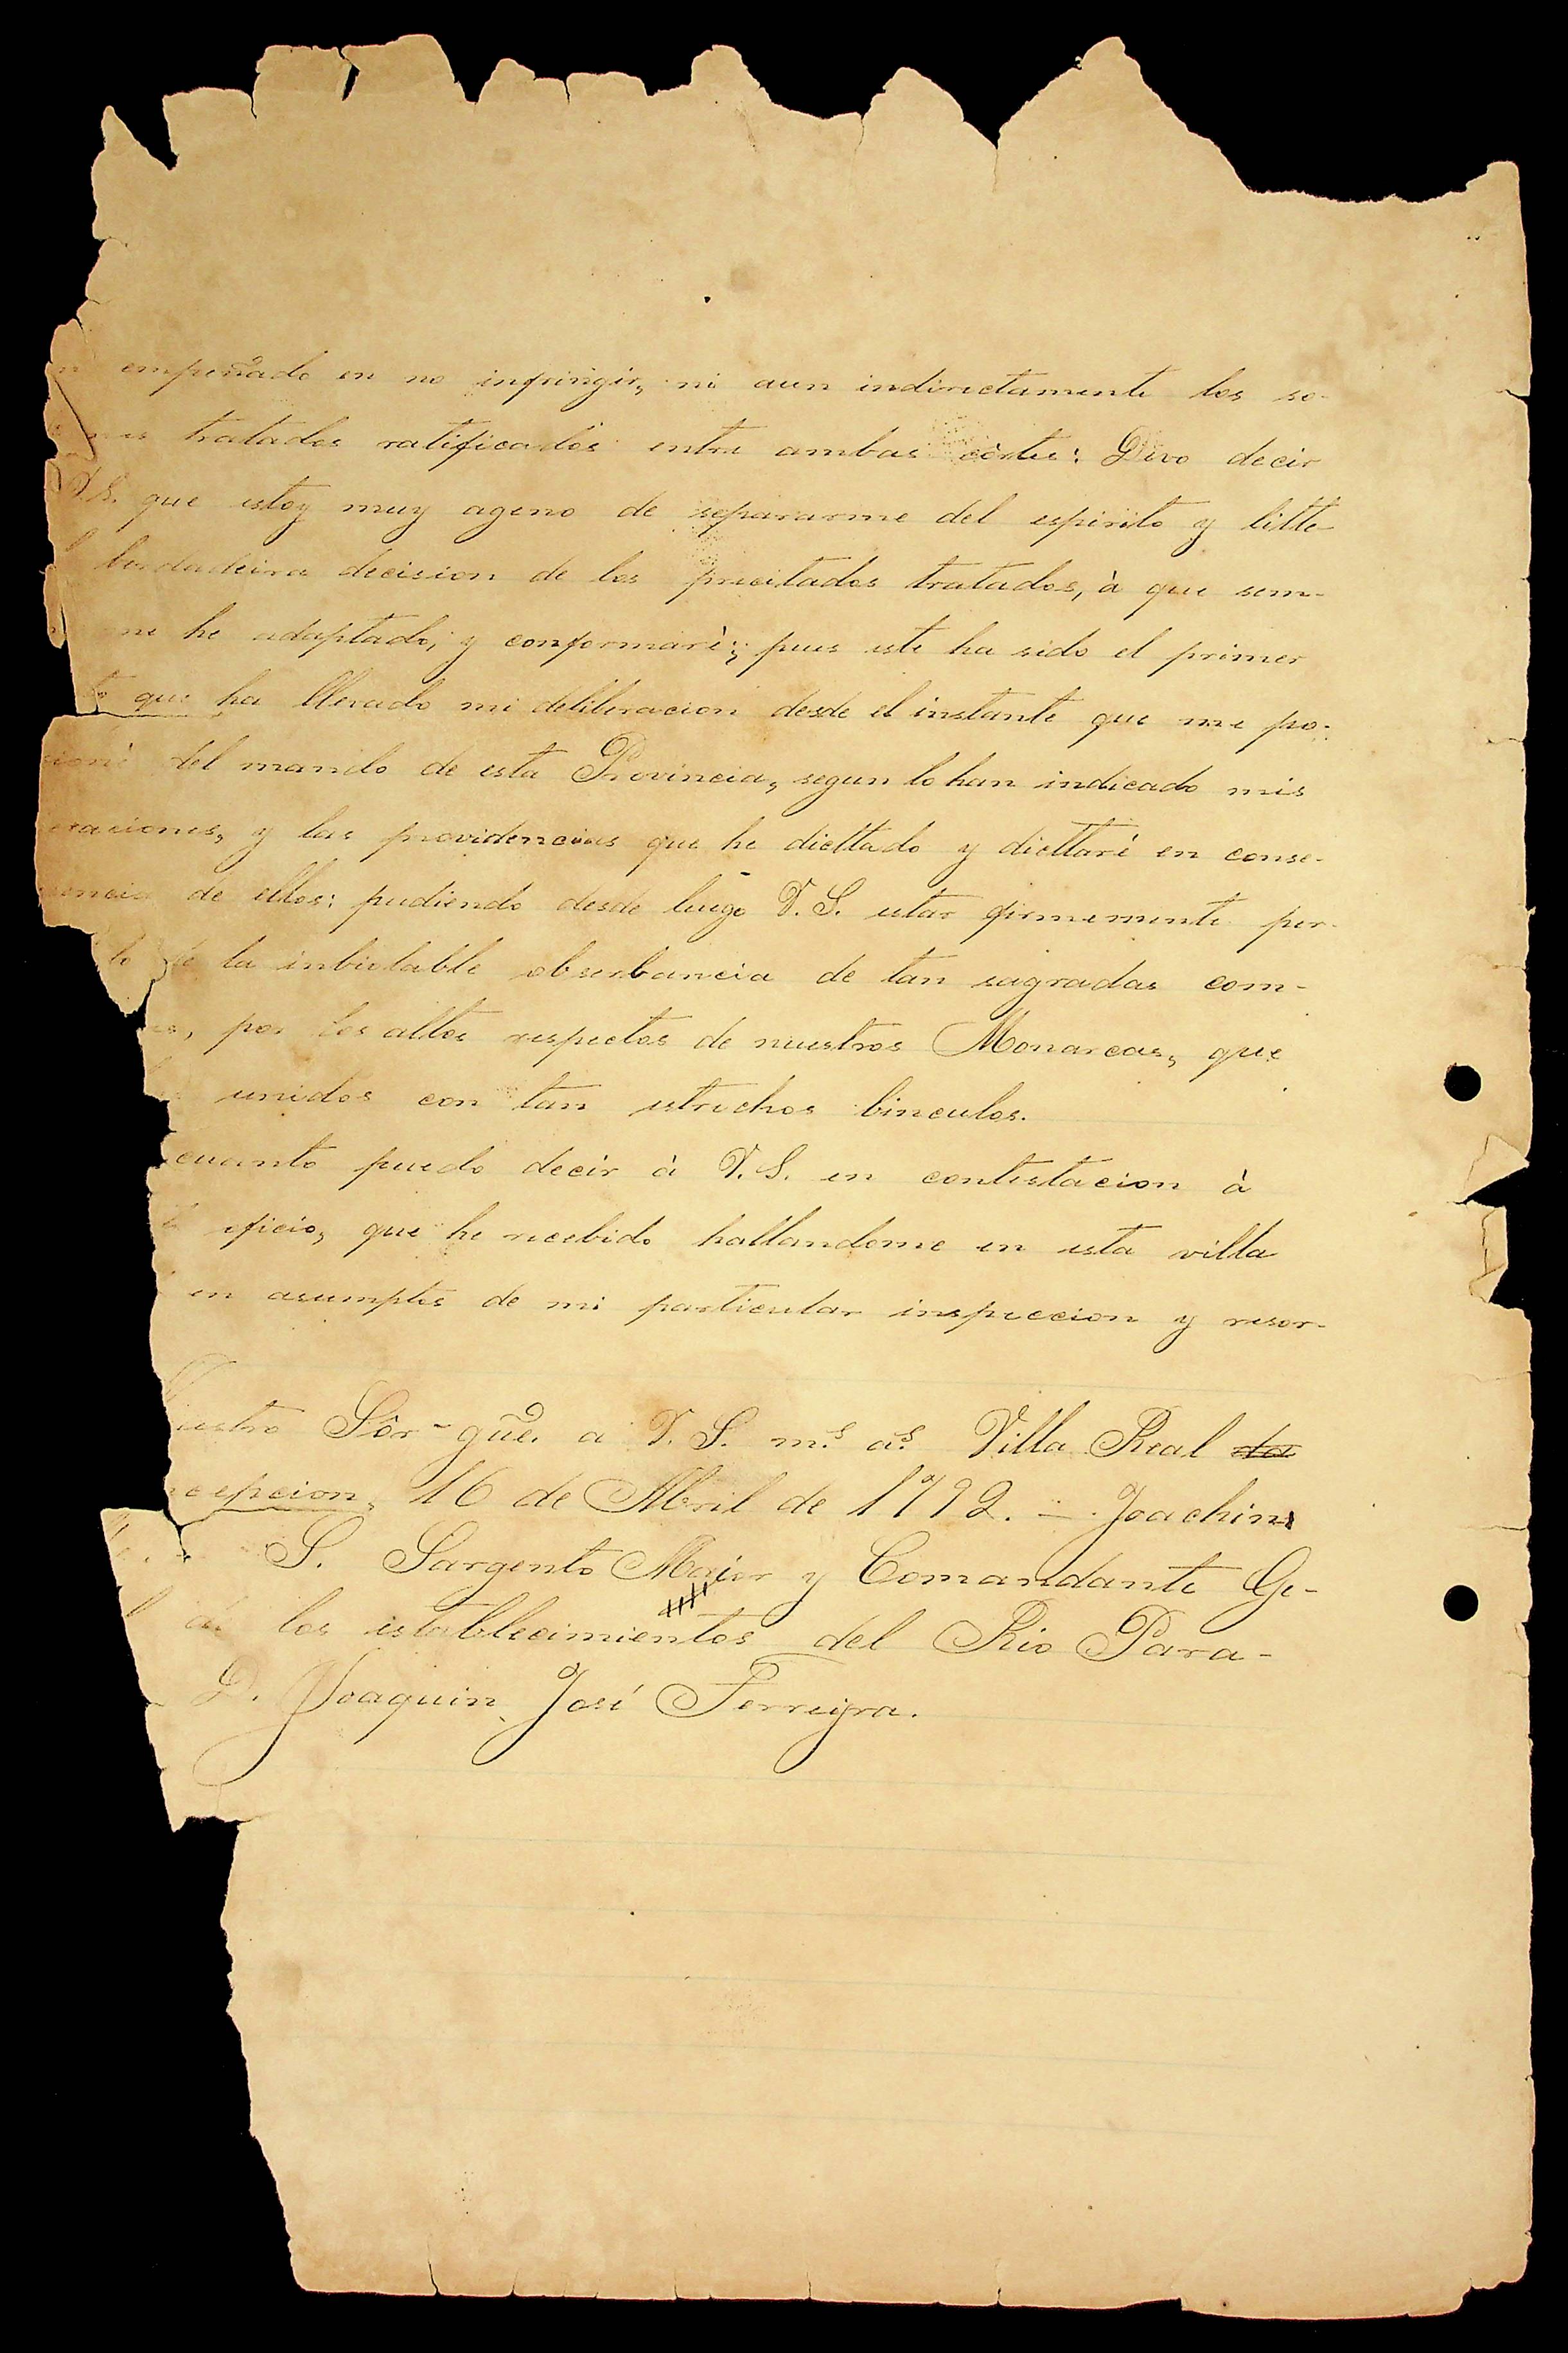 empeñado en no infringir, ni aun indirectamente los so-
nes tratados ratificados entre ambas córtes: Devo decir
V.S. que estoy muy ageno de separarme del espirito y litte-
berdadeira decision de los precitados tratados, à que sem-
me he adaptado, y conformarè; pues este ha sido el primer
que ha llevado mi deliberacion desde el instante que me po-
sionè del mando de esta Provincia, segun lo han indicado mis
eraciones, y las providencias que he dicttado y dicttaré en conse-
uencia de ellos: pudiendo desde luego V.S. estar firmemente per-
de la inbiolable obserbancia de tan sagradas com-
es, por los alttos respectos de nuestros Monarcas, que
unidos con tan estrechos binculos.
cuanto puedo decir à V.S. en contestacion à
oficio, que he recebido hallandome en esta villa
en asumptos de mi particular inspeccion y resor-
uestro Sôr gũe. a V.S. m.s a.s Villa Real da
ncepcion, 16 de Abril de 1792. — Joachim
S. Sargento Maior y Comandante Ge-
de los establecimientos del Rio Para-
D. Joaquin José Ferreyra.